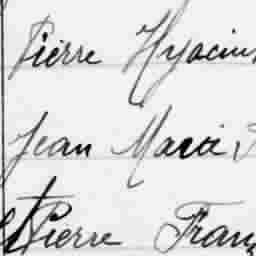 Pierre Hyacin
Jean Marie
Pierre Fran